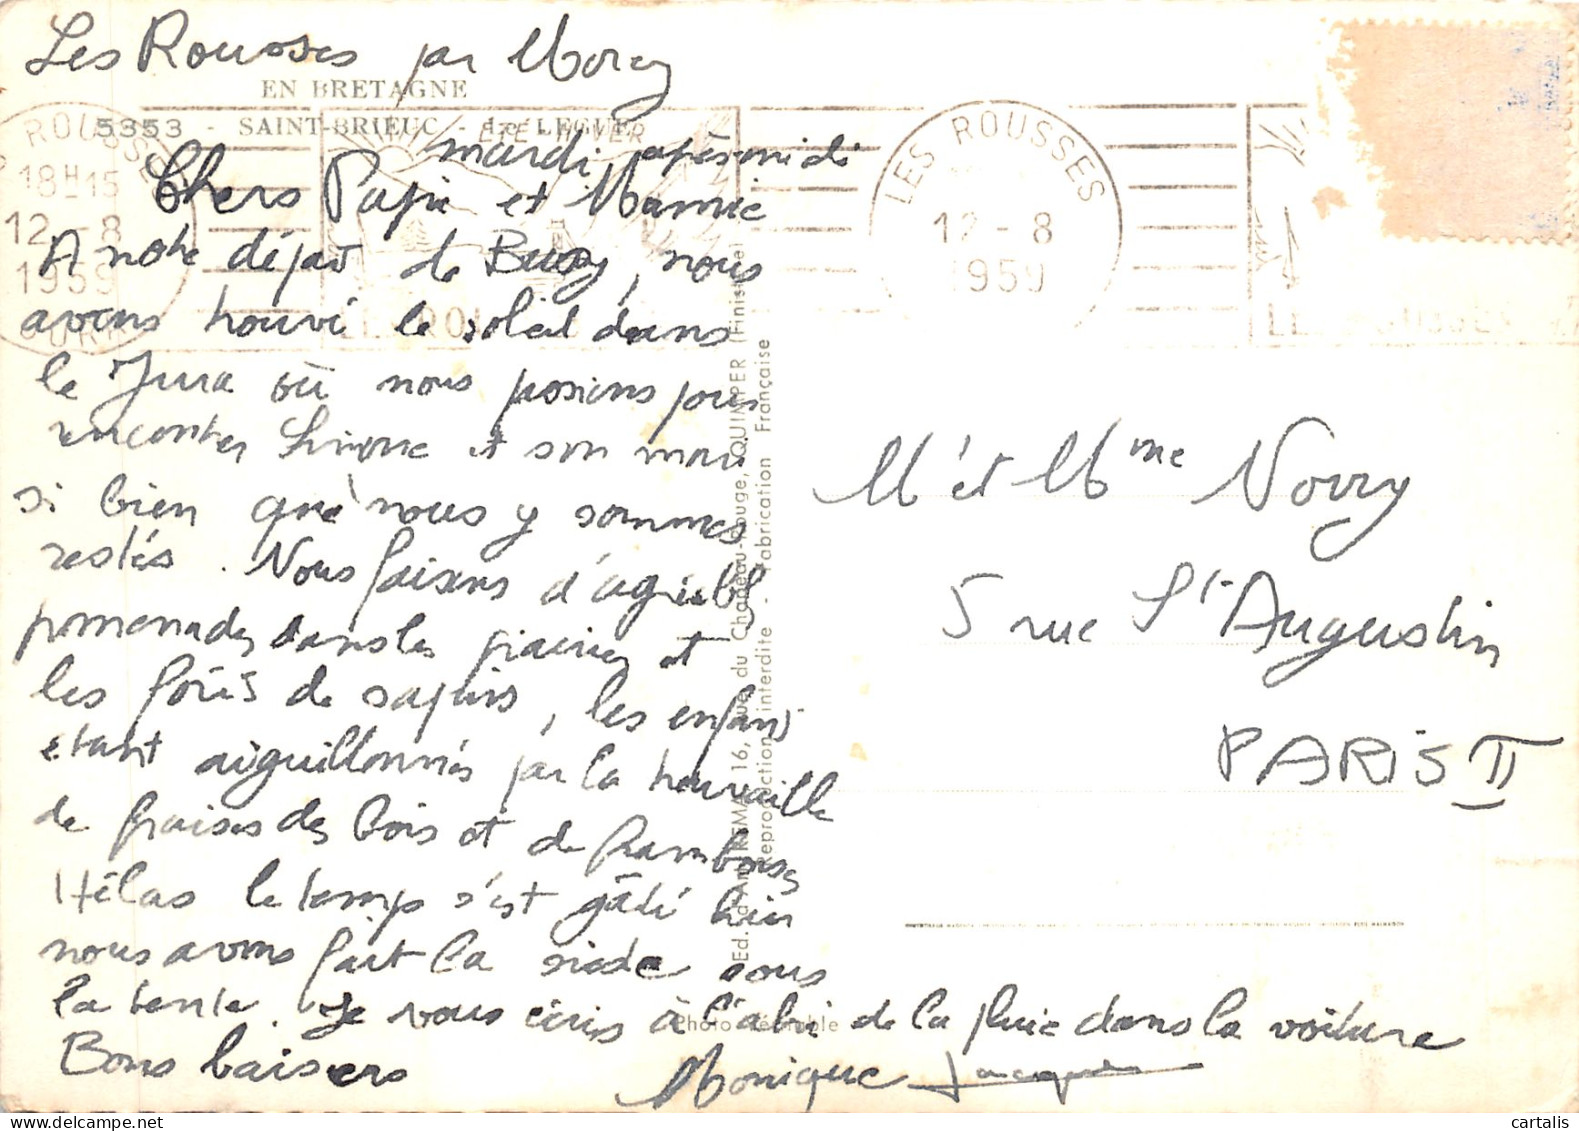 Les Rousses par Morez
EN BRETAGNE
5353 - SAINT-BRIEUC - Le LEGUÉ
mardi après midi
Chers Papi et Mamie
A notre départ de Buzy, nous
avons trouvé le soleil dans
le Jura où nous pensions pour
rencontrer Simone et son mari
si bien que nous y sommes
restés. Nous faisons d'agréabl
promenades dans les prairies et
les forêts de sapins, les enfants
étant aiguillonnés par la trouvaille
de fraises des bois et de framboises
Hélas le temps s'est gâté hier
nous avons fait la sieste sous
la tente. Je vous écris à l'abri de la pluie dans la voiture
Bons baisers
Monique Jacques
LES ROUSSES
12 - 8
1959
ROUSSES
18H15
12 - 8
1959
JURA
ÉTÉ HIVER
M et Mme Novry
5 rue St Augustin
PARIS II
Ed. d'Art 16, rue du Chapeau-Rouge, QUIMPER (Finistère)
Reproduction interdite - Fabrication Française
Photo véritable
cartalis